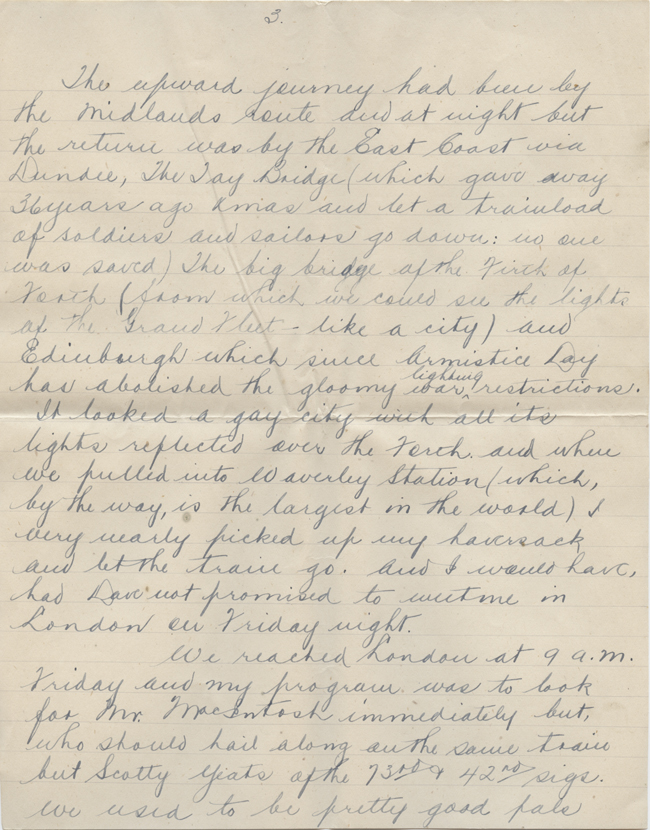 3.
The upward journey had been by
the Midlands route and at night but
the return was by the East Coast via
Dundee, The Tay Bridge (which gave away
36 years ago Xmas and let a trainload
of soldiers and sailors go down: no one
was saved) The big bridge of the Firth of
Forth (from which we could see the lights
of the Grand Fleet - like a city) and
Edinburgh which since Armistice Day
has abolished the gloomy war lighting restrictions.
It looked a gay city with all its
lights reflected over the Forth. and where
we pulled into Waverley Station (which,
by the way, is the largest in the world) I
very nearly picked up my haversack
and let the train go. And I would have,
had Dave not promised to meet me in
London on Friday night.
We reached London at 9 a.m.
Friday and my program was to look
for Mr. MacIntosh immediately but,
who should hail along on the same train
but Scotty Yeats of the 73rd & 42nd sigs.
We used to be pretty good pals